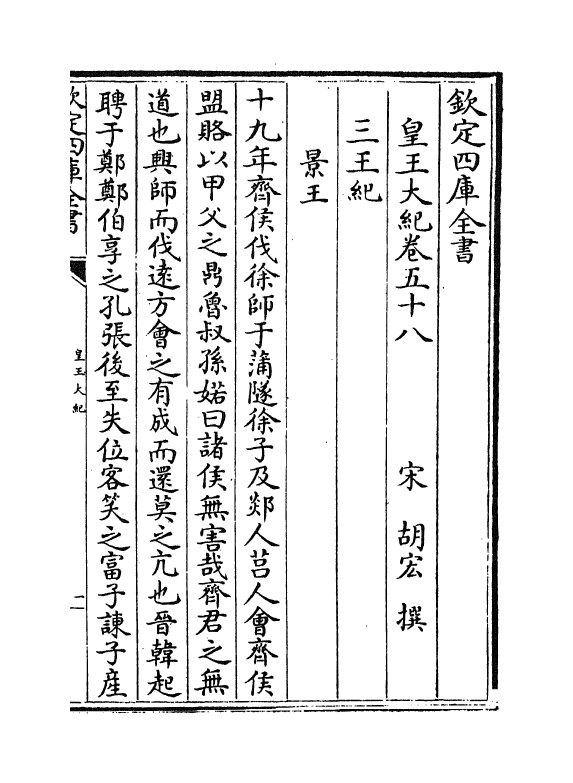 欽定四庫全書
皇王大紀卷五十八　宋　胡宏　撰
三王紀
景王
十九年齊侯伐徐師于蒲隧徐子及郯人莒人會齊侯
盟賂以甲父之鼎魯叔孫婼曰諸侯無害哉齊君之無
道也興師而伐逺方會之有成而還莫之亢也晉韓起
聘于鄭鄭伯享之孔張後至失位客笑之富子諫子産
欽定四庫全書
皇王大紀